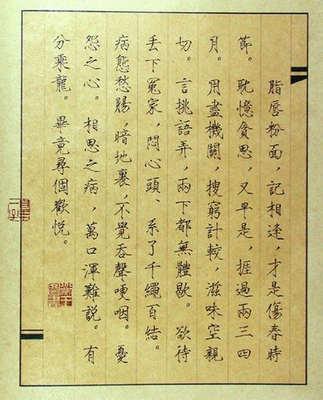 脂唇粉面，記相逢，才是傷春時
節。耽憶食思，又早是捱過兩三四
月。用盡機關，搜窮計較，滋味空親
切。言挑語弄，兩下都無體歇。欲待
丟下冤家，悶心頭、系了千繩百結。
病態愁腸，暗地裏，不覺吞聲哽咽。憂
怨之心。相思之病，萬口渾難説。有
分乘龍。畢竟尋個歡悅。